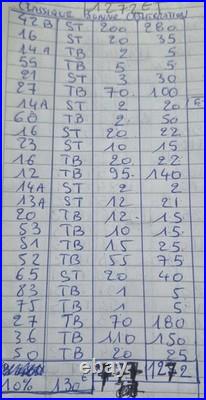 1272E
CLASSIQUE BONINE OBLITERATION
42B ST 200 280
16 ST 20 35
14A TB 2 5
55 TB 5 5
21 ST 3 30
27 TB 70 100
14A ST 2 20
60 TB 2 50
16 ST 20 22
23 ST 10 15
16 TB 20 22
12 TB 95 140
14A ST 2 2
13A ST 12 21
20 TB 12 15
53 TB 10 15
51 TB 15 25
52 TB 55 75
65 ST 20 40
83 TB 1 5
75 TB 1 5
27 TB 70 180
36 TB 110 150
50 TB 20 25
1272
10% 130
ebay